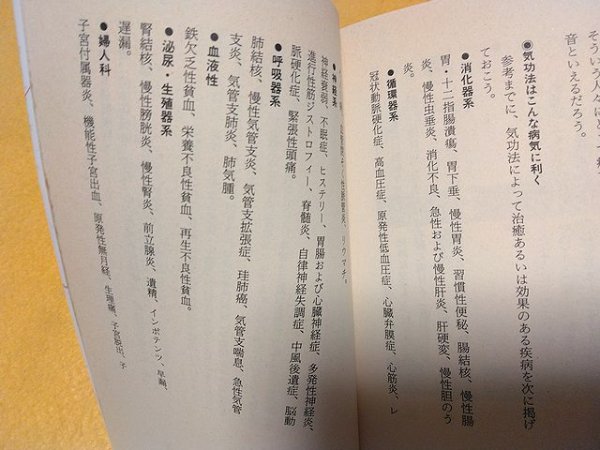 そういう人々にと
音といえるだろう。
●気功法はこんな病気に利く
参考までに、気功法によって治癒あるいは効果のある疾病を次に掲げ
ておこう。
●消化器系
胃・十二指腸潰瘍、胃下垂、慢性胃炎、習慣性便秘、腸結核、慢性腸
炎、慢性虫垂炎、消化不良、急性および慢性肝炎、肝硬変、慢性胆のう
炎。
●循環器系
冠状動脈硬化症、高血圧症、原発性低血圧症、心臓弁膜症、心筋炎、レ
性関節炎、リウマチ。
●神経系
神経衰弱、不眠症、ヒステリー、胃腸および心臓神経症、多発性神経炎、
進行性筋ジストロフィー、脊髄炎、自律神経失調症、中風後遺症、脳動
脈硬化症、緊張性頭痛。
●呼吸器系
肺結核、慢性気管支炎、気管支拡張症、珪肺癌、気管支喘息、急性気管
支炎、気管支肺炎、肺気腫。
●血液性
鉄欠乏性貧血、栄養不良性貧血、再生不良性貧血。
●泌尿・生殖器系
腎結核、慢性膀胱炎、慢性腎炎、前立腺炎、遺精、インポテンツ、早漏、
遅漏。
●婦人科
子宮付属器炎、機能性子宮出血、原発性無月経、生理痛、子宮脱出、子